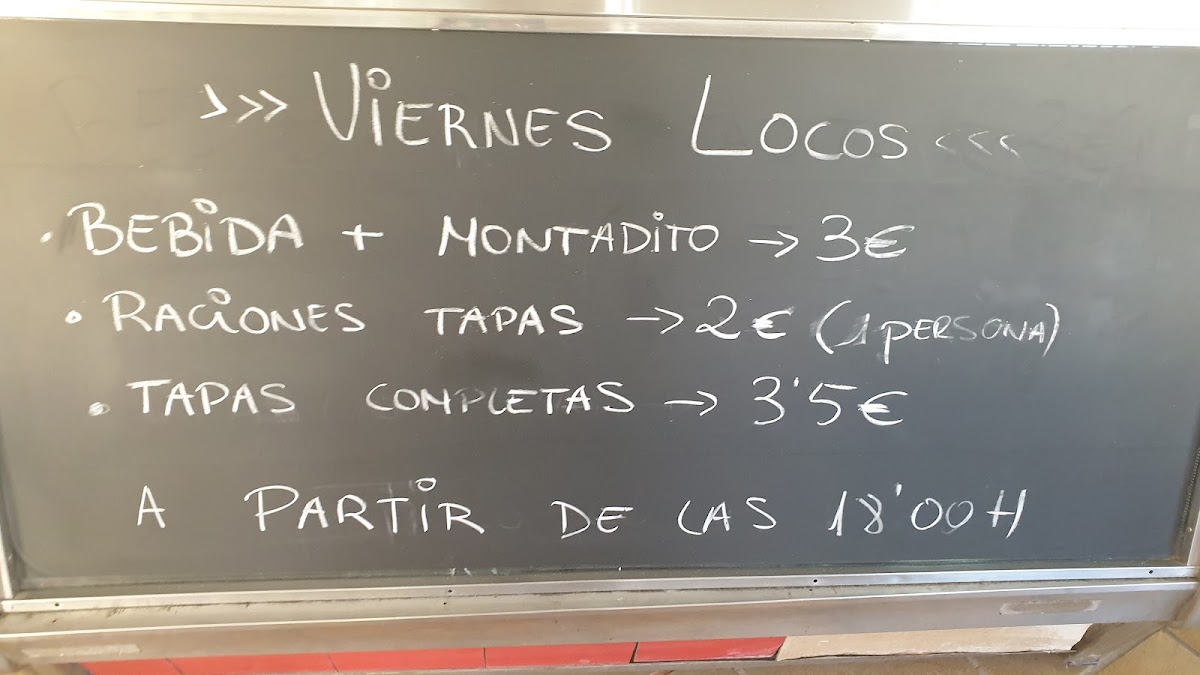 >>> VIERNES LOCOS <<<
• BEBIDA + MONTADITO → 3€
• RACIONES TAPAS → 2€ (1 PERSONA)
• TAPAS COMPLETAS → 3'5€
A PARTIR DE LAS 18'00H